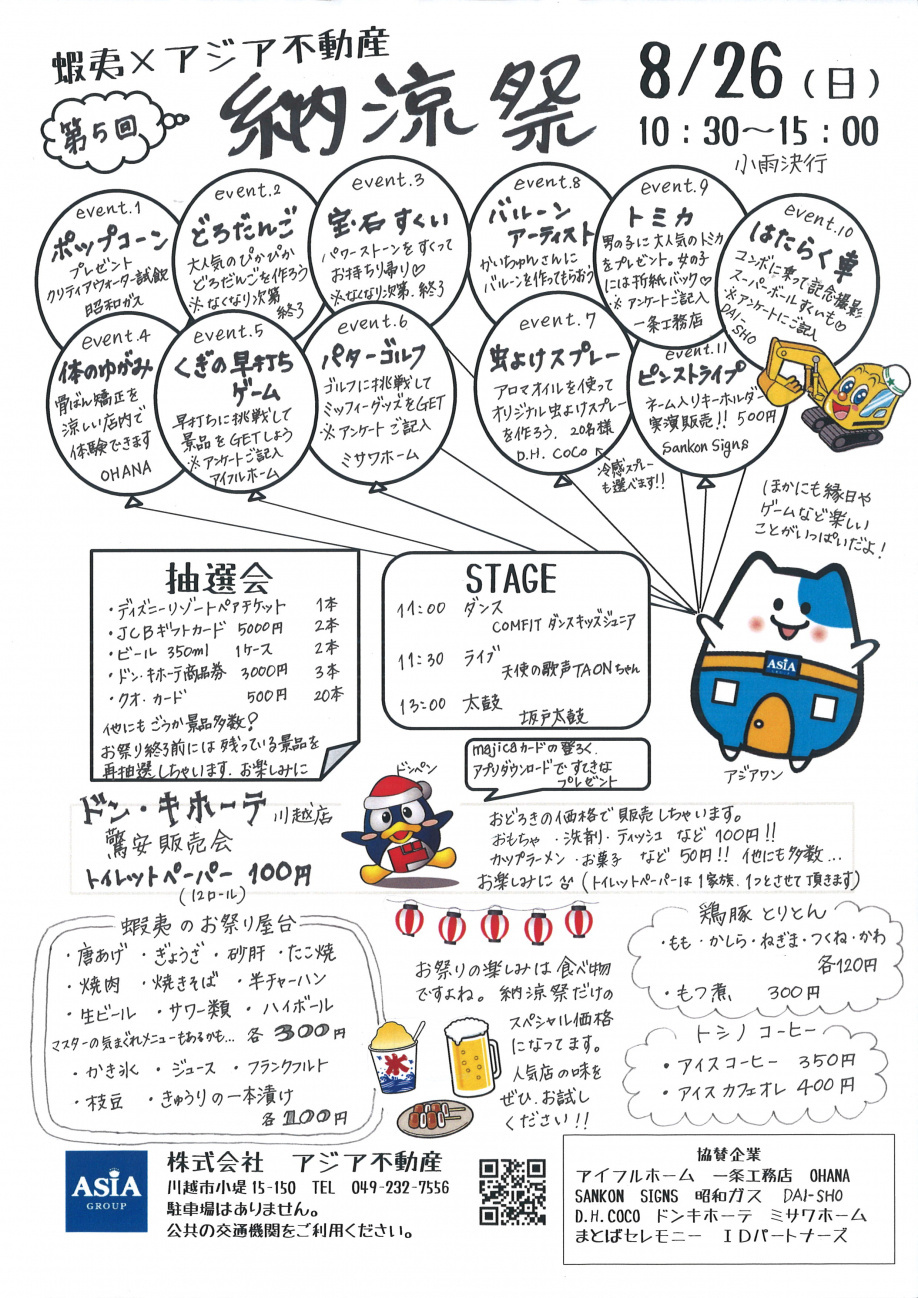 蝦夷×アジア不動産
第5回
納涼祭
8/26（日）
10：30～15：00
小雨決行
event.1
ポップコーン
プレゼント
クリティアウォーター試飲
昭和ガス
event.2
どろだんご
大人気のぴかぴか
どろだんごを作ろう
※なくなり次第
終了
event.3
宝石すくい
パワーストーンをすくって
お持ち帰り♡
※なくなり次第.終了
event.8
バルーン
アーティスト
かいちゃんさんに
バルーンを作ってもらおう
event.9
トミカ
男の子に大人気のトミカ
をプレゼント。女の子
には折紙バック♡
※アンケートご記入
一条工務店
event.10
はたらく車
ユンボに乗って記念撮影
スーパーボールすくいも♡
※アンケートにご記入
DAI-SHO
event.4
体のゆがみ
骨ばん矯正を
涼しい店内で
体験できます
OHANA
event.5
くぎの早打ち
ゲーム
早打ちに挑戦して
景品をGETしよう
※アンケートご記入
アイフルホーム
event.6
パターゴルフ
ゴルフに挑戦して
ミッフィーグッズをGET
※アンケートご記入
ミサワホーム
event.7
虫よけスプレー
アロマオイルを使って
オリジナル虫よけスプレー
を作ろう. 20名様
D.H. COCO
冷感スプレー
も選べます!!
event.11
ピンストライプ
ネーム入りキーホルダー
実演販売!! 500円
Sankon Signs
ほかにも縁日や
ゲームなど楽しい
ことがいっぱいだよ!
抽選会
・ディズニーリゾートペアチケット 1本
・JCBギフトカード 5000円 2本
・ビール 350ml 1ケース 2本
・ドン・キホーテ商品券 3000円 3本
・クオ・カード 500円 20本
他にもごうか景品多数?
お祭り終了前には残っている景品を
再抽選しちゃいます. お楽しみに
STAGE
11:00 ダンス
COMFIT ダンスキッズジュニア
11:30 ライブ
天使の歌声TAONちゃん
13:00 太鼓
坂戸太鼓
ASIA
GROUP
アジアワン
majicaカードの登ろく.
アプリダウンロードですてきな
プレゼント
ドンペン
ドン・キホーテ 川越店
驚安販売会
トイレットペーパー 100円
(12ロール)
おどろきの価格で販売しちゃいます。
おもちゃ ・洗剤・ティッシュ など 100円!!
カップラーメン・お菓子 など 50円!! 他にも多数...
お楽しみに (トイレットペーパーは1家族.1つとさせて頂きます)
蝦夷のお祭り屋台
・唐あげ ・ぎょうざ ・砂肝 ・たこ焼
・焼肉 ・焼きそば ・半チャーハン
・生ビール ・サワー類 ・ハイボール
マスターの気まぐれメニューもあるかも... 各300円
・かき氷 ・ジュース ・フランクフルト
・枝豆 ・きゅうりの一本漬け
各100円
お祭りの楽しみは食べ物
ですよね。納涼祭だけの
スペシャル価格
になってます。
人気店の味を
ぜひ、お試し
ください!!
氷
鶏豚とりとん
・もも・かしら・ねぎま・つくね・かわ
各120円
・もつ煮 300円
トシノコーヒー
・アイスコーヒー 350円
・アイスカフェオレ 400円
ASIA
GROUP
株式会社 アジア不動産
川越市小堤15-150 TEL 049-232-7556
駐車場はありません。
公共の交通機関をご利用ください。
協賛企業
アイフルホーム 一条工務店 OHANA
SANKON SIGNS 昭和ガス DAI-SHO
D.H.COCO ドンキホーテ ミサワホーム
まとばセレモニー IDパートナーズ